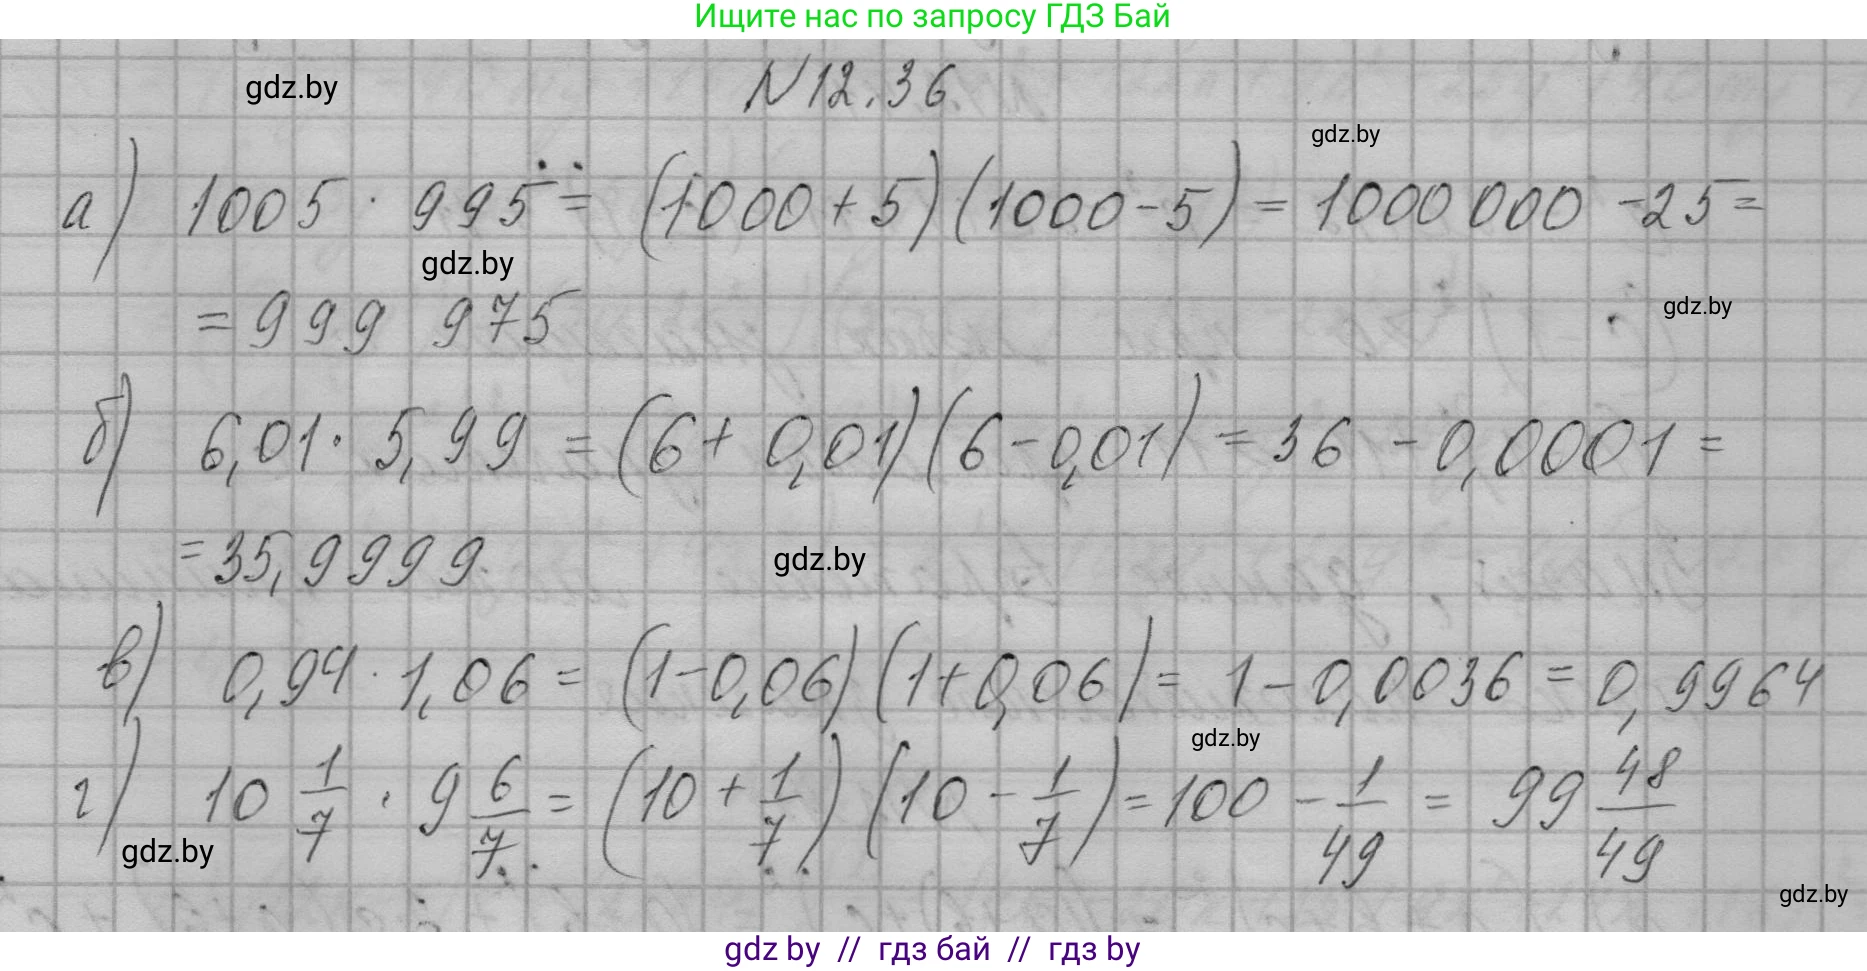 Ищите нас по запросу ГДЗ Бай
gdz.by
N 12.36
gdz.by
а) 1005 · 995 = (1000 + 5)(1000 - 5) = 1000 000 - 25 =
gdz.by
= 999 975
gdz.by
б) 6,01 · 5,99 = (6 + 0,01)(6 - 0,01) = 36 - 0,0001 =
= 35,9999
gdz.by
в) 0,94 · 1,06 = (1 - 0,06)(1 + 0,06) = 1 - 0,0036 = 0,9964
gdz.by
г) 10 1/7 · 9 6/7 = (10 + 1/7)(10 - 1/7) = 100 - 1/49 = 99 48/49
gdz.by
gdz.by
gdz by // гдз бай // гдз by